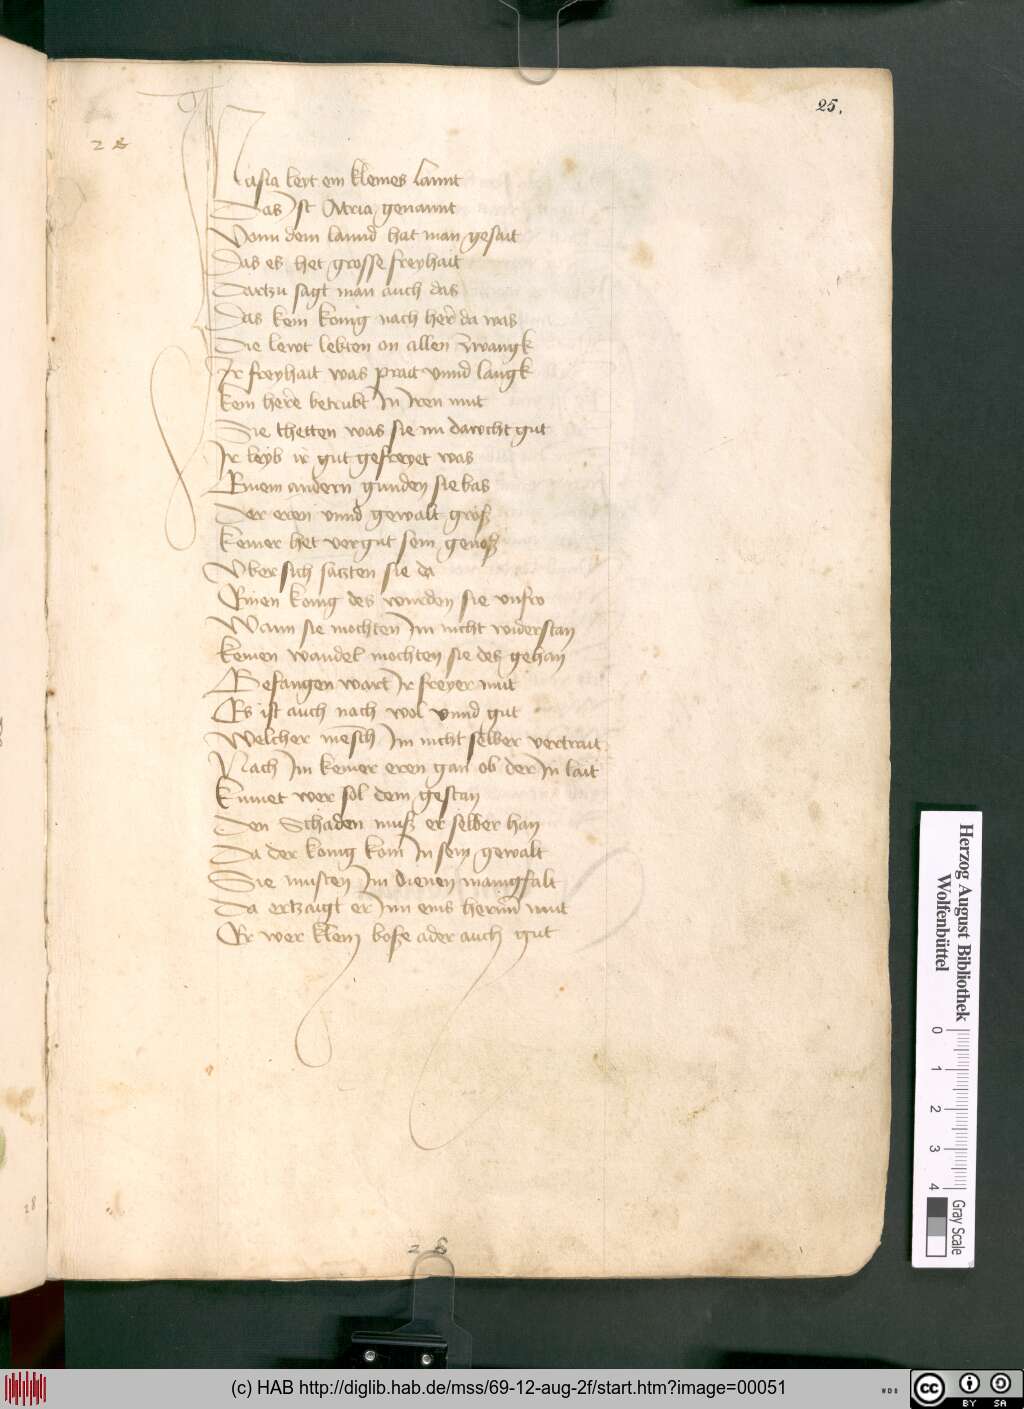 25.
28
In asia leyt ein kleines lannt
Das Ist Atria genannt
Vonn dem lannd hat man gesait
Das es het grosse freyhait
Dartzu sagt man auch das
Das kein konig nach here da was
Die lewt lebten on allen zwangk
Ir freyhait was prait vnnd langk
kein here betrubt In Iren mut
Sie thetten was sie nu dawcht gut
Ir leyb ir gut gefreyet was
Einem andern gunden sie bas
Der eren vnnd gewalt groß
keiner het vergut sein genoß
Vber sich satzten sie da
Einen konig des wurden sie vnfro
Wann sie mochten Im nicht widerstan
keinen wandel mochten sie des gehan
Gefangen wart Ir freyer mut
Es ist auch nach wol vnnd gut
Welcher mensch Im nicht selber vertrait
Nach Im keiner eren gan ob der In lait
kumet wer sol dem gestan
Den Schaden muß er selber han
Da der konig kom In sein gewalt
Sie musten Im dienen manigfalt
Da ertzaigt er Im eins herrn mut
Er wer klein boße ader auch gut
28
28
Herzog August Bibliothek
Wolfenbüttel
0 1 2 3 4
Gray Scale
(c) HAB http://diglib.hab.de/mss/69-12-aug-2f/start.htm?image=00051
WDB
cc BY SA